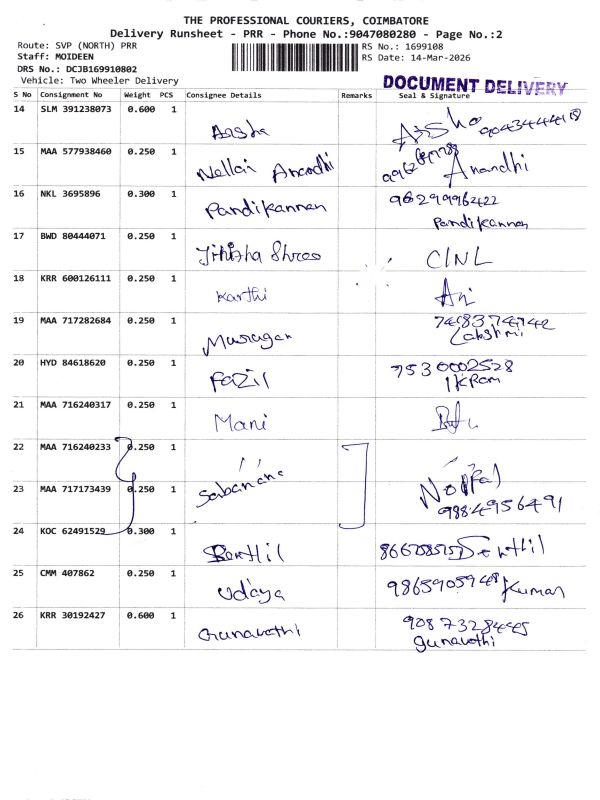 THE PROFESSIONAL COURIERS, COIMBATORE
Delivery Runsheet - PRR - Phone No.:9047080280 - Page No.:2
Route: SVP (NORTH) PRR
Staff: MOIDEEN
DRS No.: DCJB169910802
Vehicle: Two Wheeler Delivery
RS No.: 1699108
RS Date: 14-Mar-2026
DOCUMENT DELIVERY
S No Consignment No Weight PCS Consignee Details Remarks Seal & Signature
14 SLM 391238073 0.600 1 Aasha Aisha
15 MAA 577938460 0.250 1 Nellai Anandhi Anandhi
16 NKL 3695896 0.300 1 Pandikannan 96299962422
Pandikannan
17 BWD 80444071 0.250 1 Jithisha Shree CINL
18 KRR 600126111 0.250 1 Karthi
19 MAA 717282684 0.250 1 Murugan
Lakshmi
20 HYD 84618620 0.250 1 Fazil 7530002528
IKRam
21 MAA 716240317 0.250 1 Mani
22 MAA 716240233 0.250 1 ,,
23 MAA 717173439 0.250 1 9884956491
24 KOC 62491529 0.300 1 Senthil Senthil
25 CMM 407862 0.250 1 Udaya Kumar
26 KRR 30192427 0.600 1 Gunavathi 9087328445
gunavathi